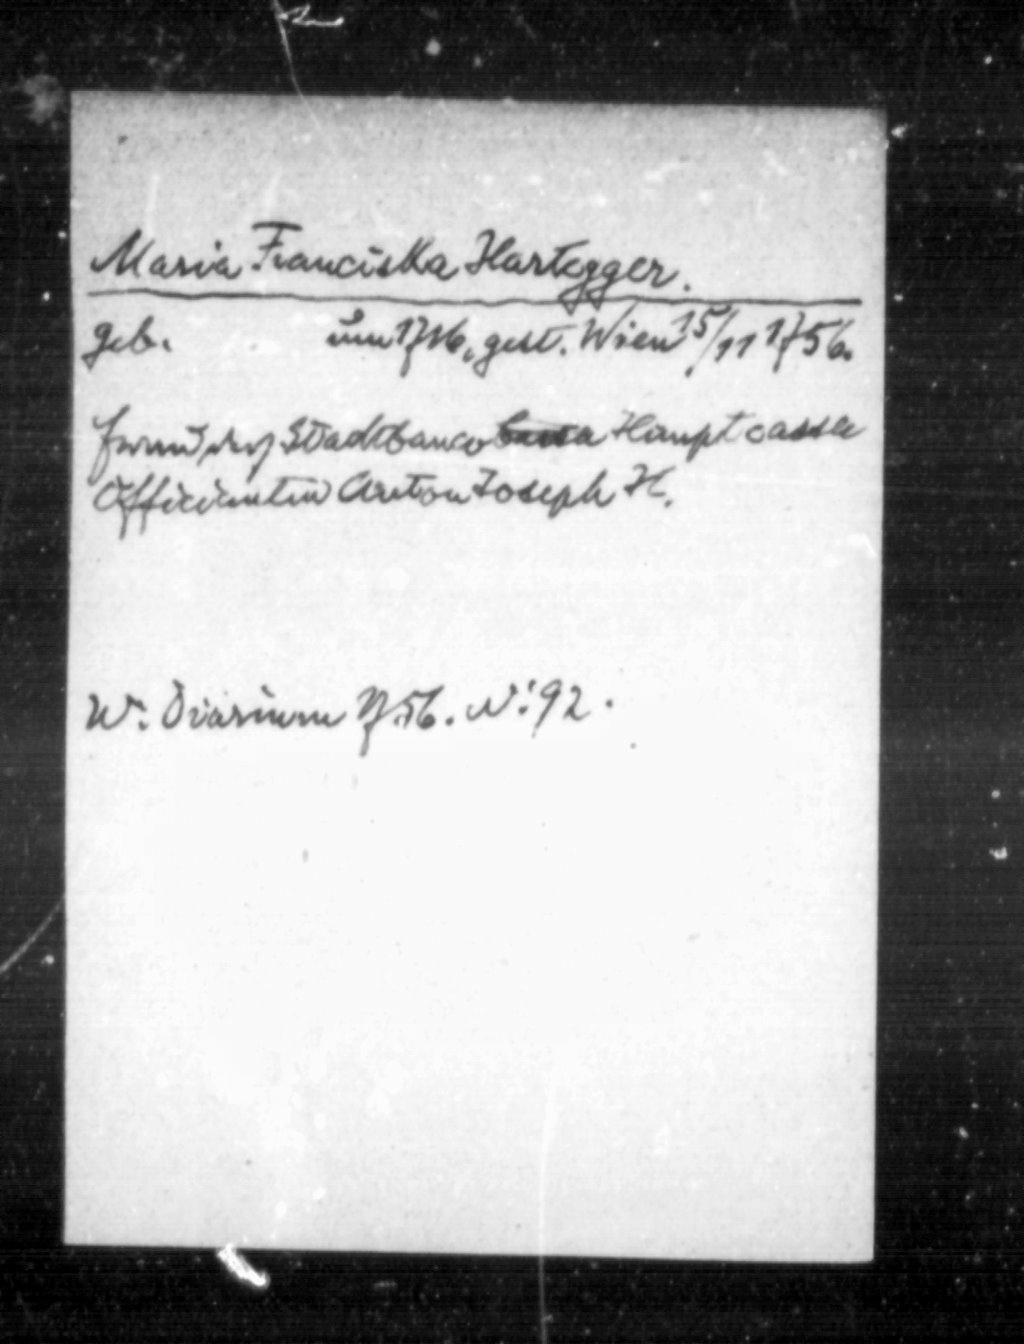 Maria Franciska Hartegger.
geb. um 1716, gest. Wien 15/11 1756.
Frau des Stadtbanco Hauptcassa
Officianten Anton Joseph H.
W. Diarium 1756. N: 92.